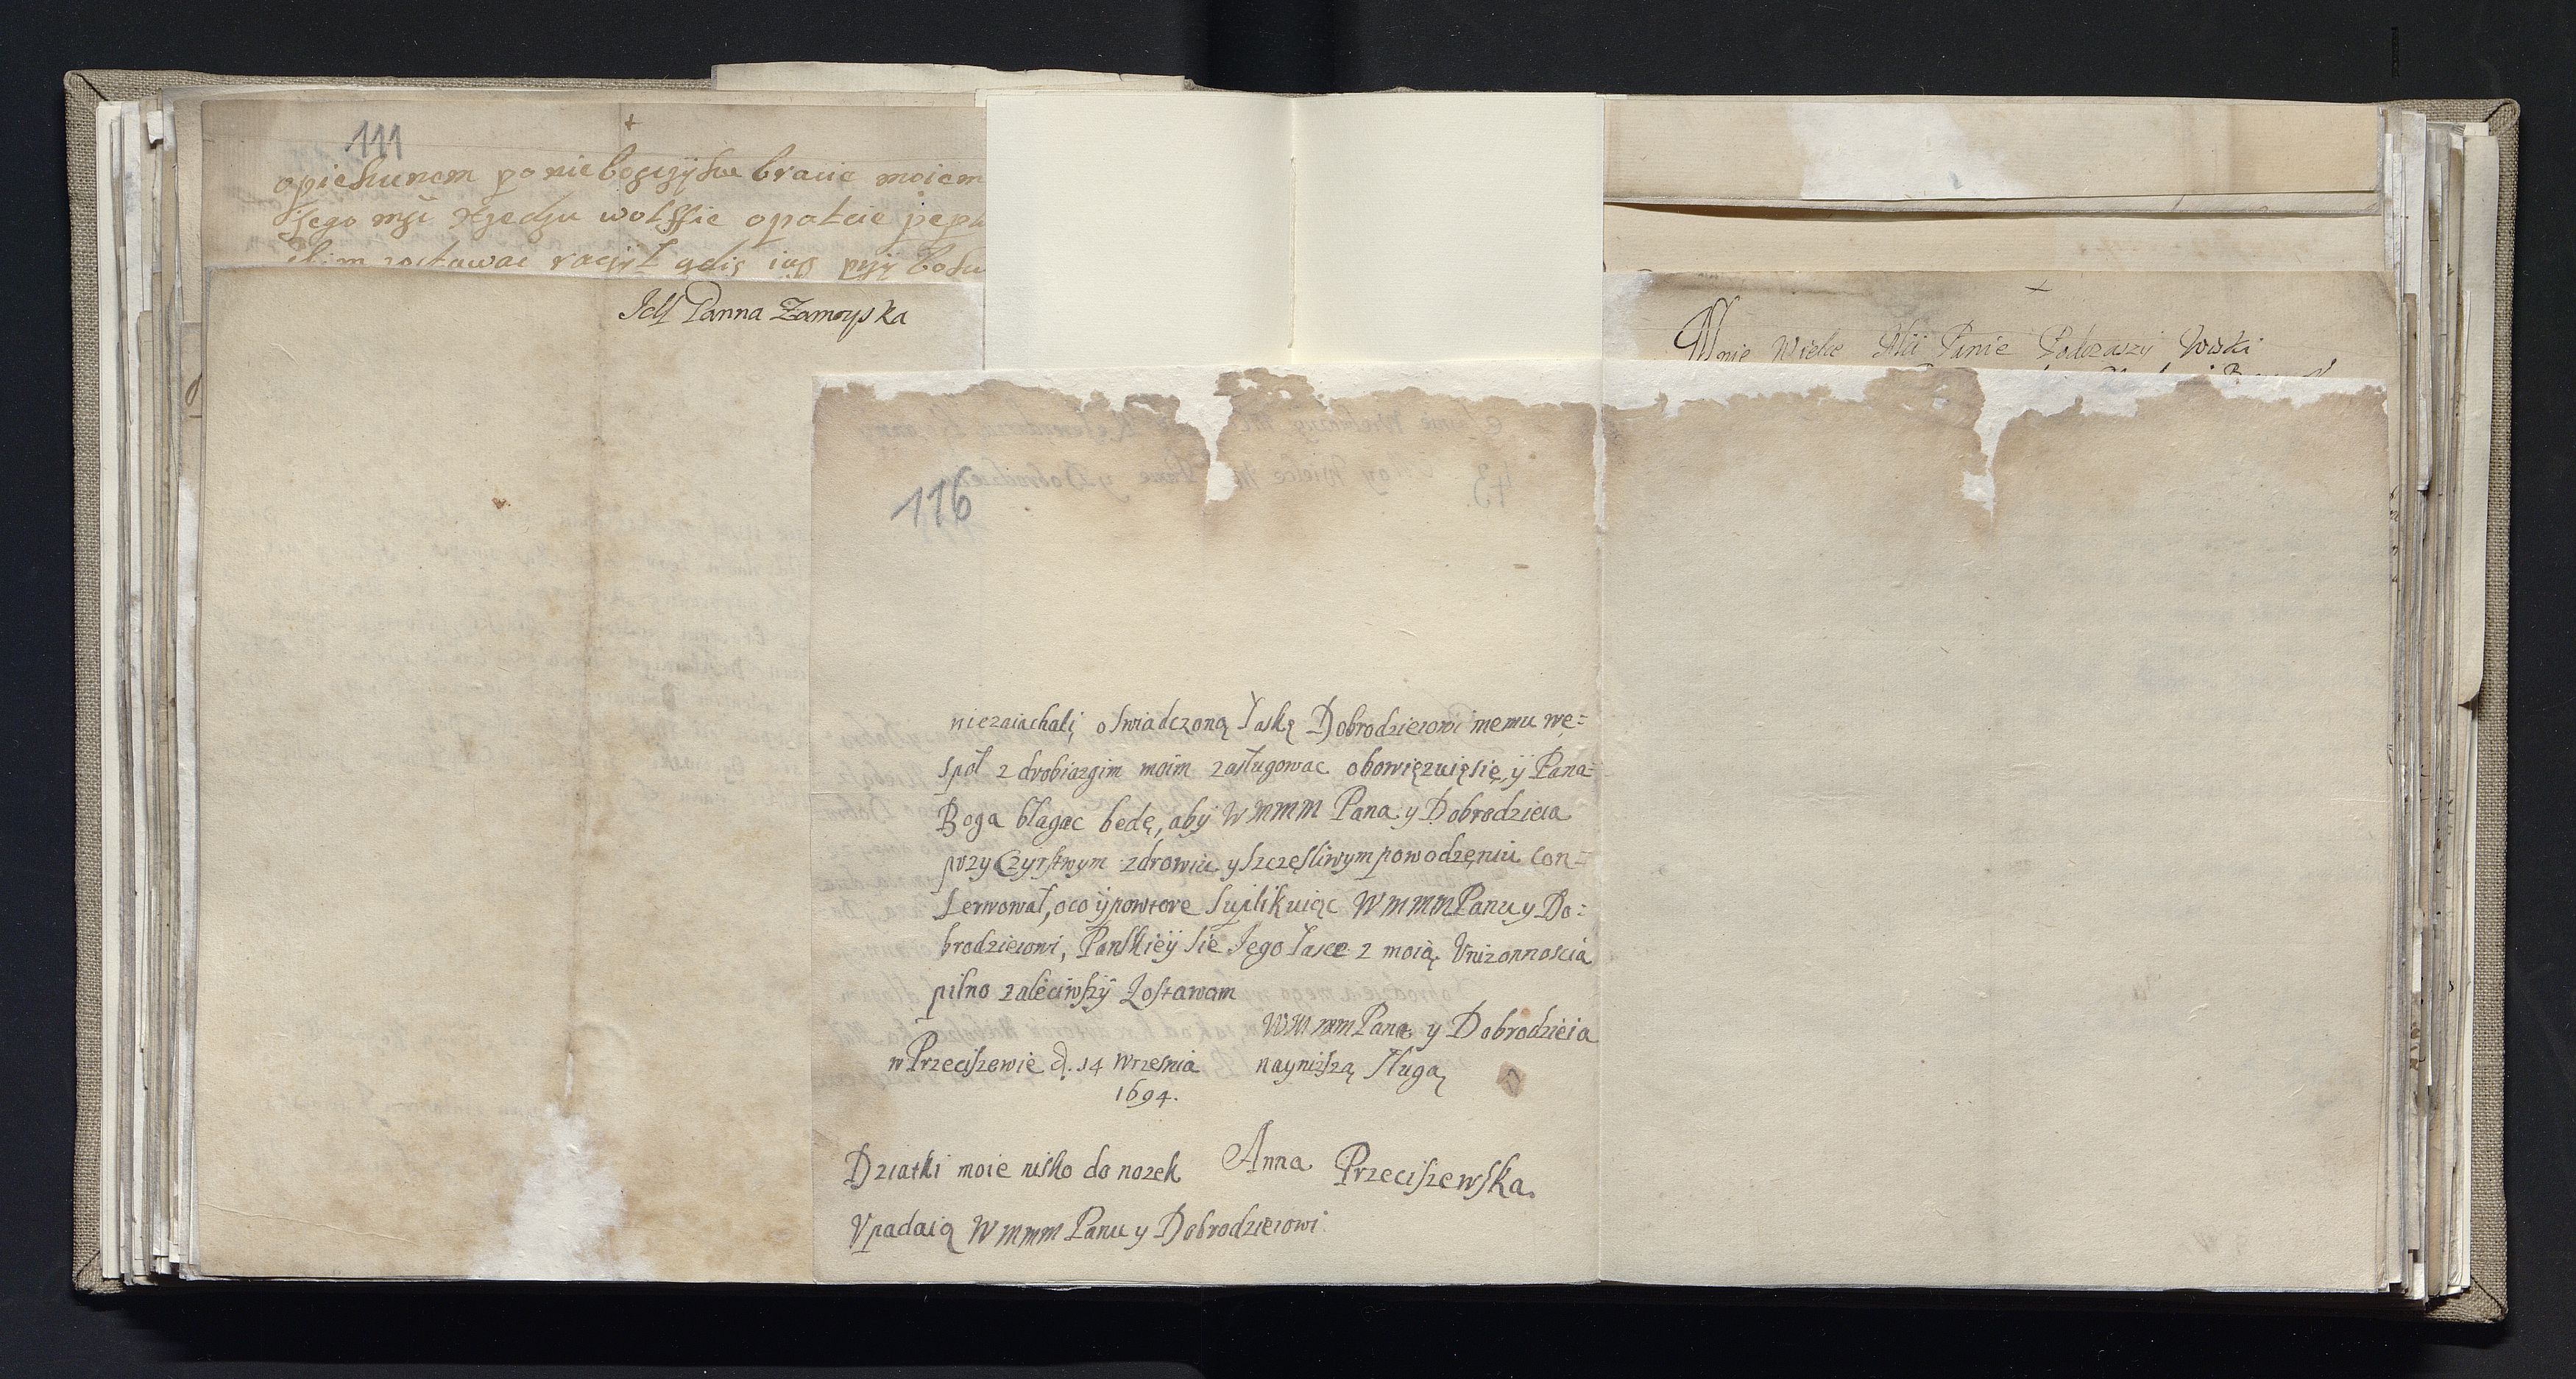 111
opiekunem po nieboszyku bracie moiem
Jego msci xjedzu wolffie opatcie pepl
zostawac raczył gdis iusz pyy bosk
JeM Panna Zamoyska
Mnie Wielce Mci Panie Podczaszy
116
niezaiachali, oswiadczoną łaskę Dobrodzieiowi memu we=
społ z drobiazgim moim zasługowac obowięzuię się, ÿ Pana
Boga błagac będę, abÿ W mmm Pana y Dobrodzieia
przy Czyrstwym zdrowiu y szczęsliwym powodzęniu con=
serwował, oco ÿ powtore suplikuiąc W mmm Panu y Do=
brodzieiowi, Panskieÿ sie Jego łasce z moią Vnizonnoscia
pilno zaleciwszÿ Zostawam
WM mm Pana y Dobrodzieia
w Przeciszewie d. 14 Wrzesnia nayniższą sługą
1694.
Dziatki moie nisko do nozek Anna Przeciszewska.
Vpadaią W mmm Panu y Dobrodzieiowi